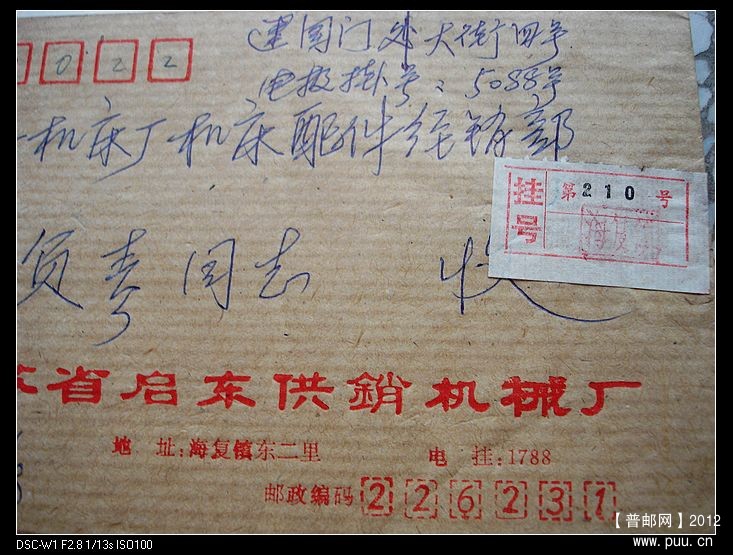 建国门外大街四号
电报挂号：5088号
0022
一机床厂机床配件经销部
挂号
第210号
负责 同志 收
苏省启东供销机械厂
地 址:海复镇东二里
电 挂:1788
邮政编码 226231
【普邮网】2012
www.puu.cn
DSC-W1 F2.8 1/13s ISO100